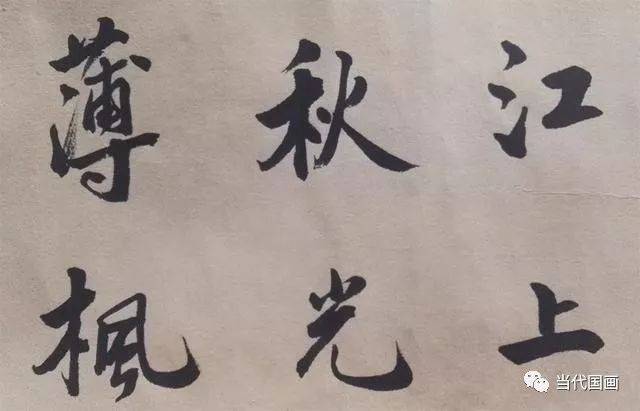 江上
秋光
薄枫
当代国画